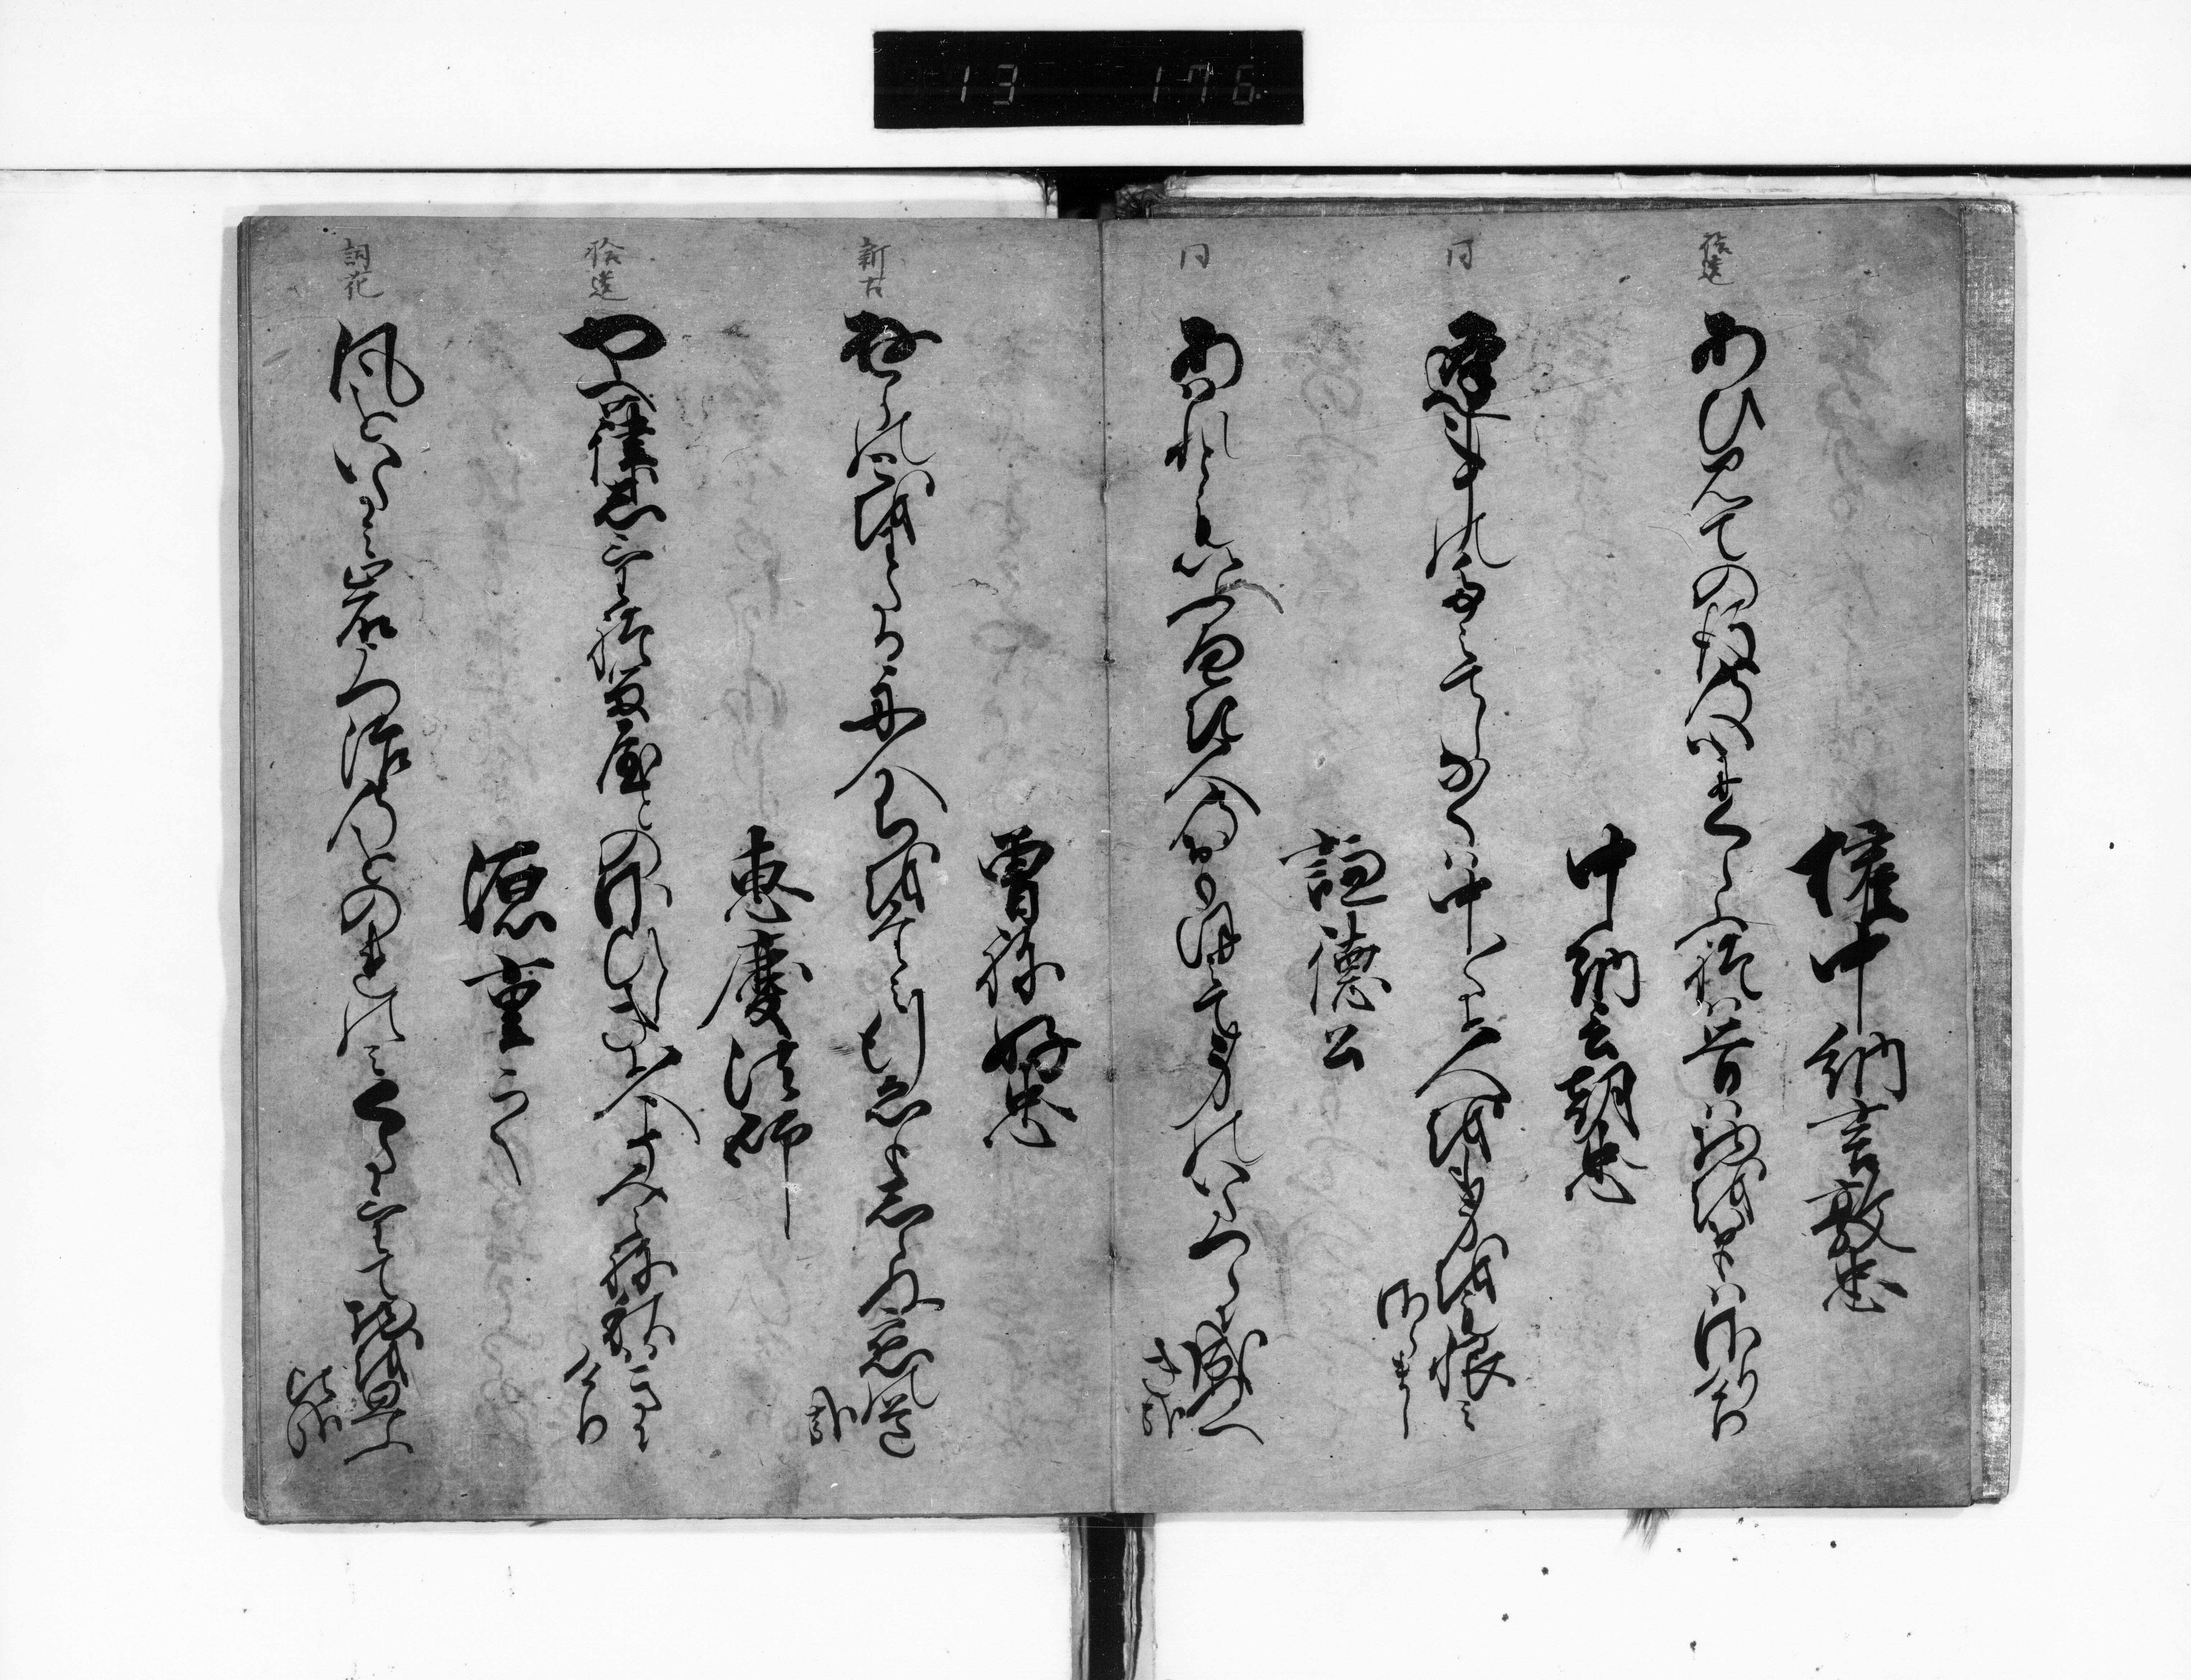 13 176
権中納言敦忠
拾遺
あひみての後の心にくらふれは昔は物をおもはさりけり
中納言朝忠
同
逢事のたえてしなくは中々に人をも身をも恨み
さらまし
謙徳公
同
あはれともいふへき人はおもほえて身のいたつらに成ぬへ
きかな
曽祢好忠
新古
由らのとをわたる舟人かちをたえ行ゑもしらぬ恋の道
哉
恵慶法師
拾遺
やへ葎しけれる宿のさひしきに人こそみえね秋はきに
けり
源重之
詞花
風をいたみ岩うつ波のをのれのみくたけて物を思ふ
比哉